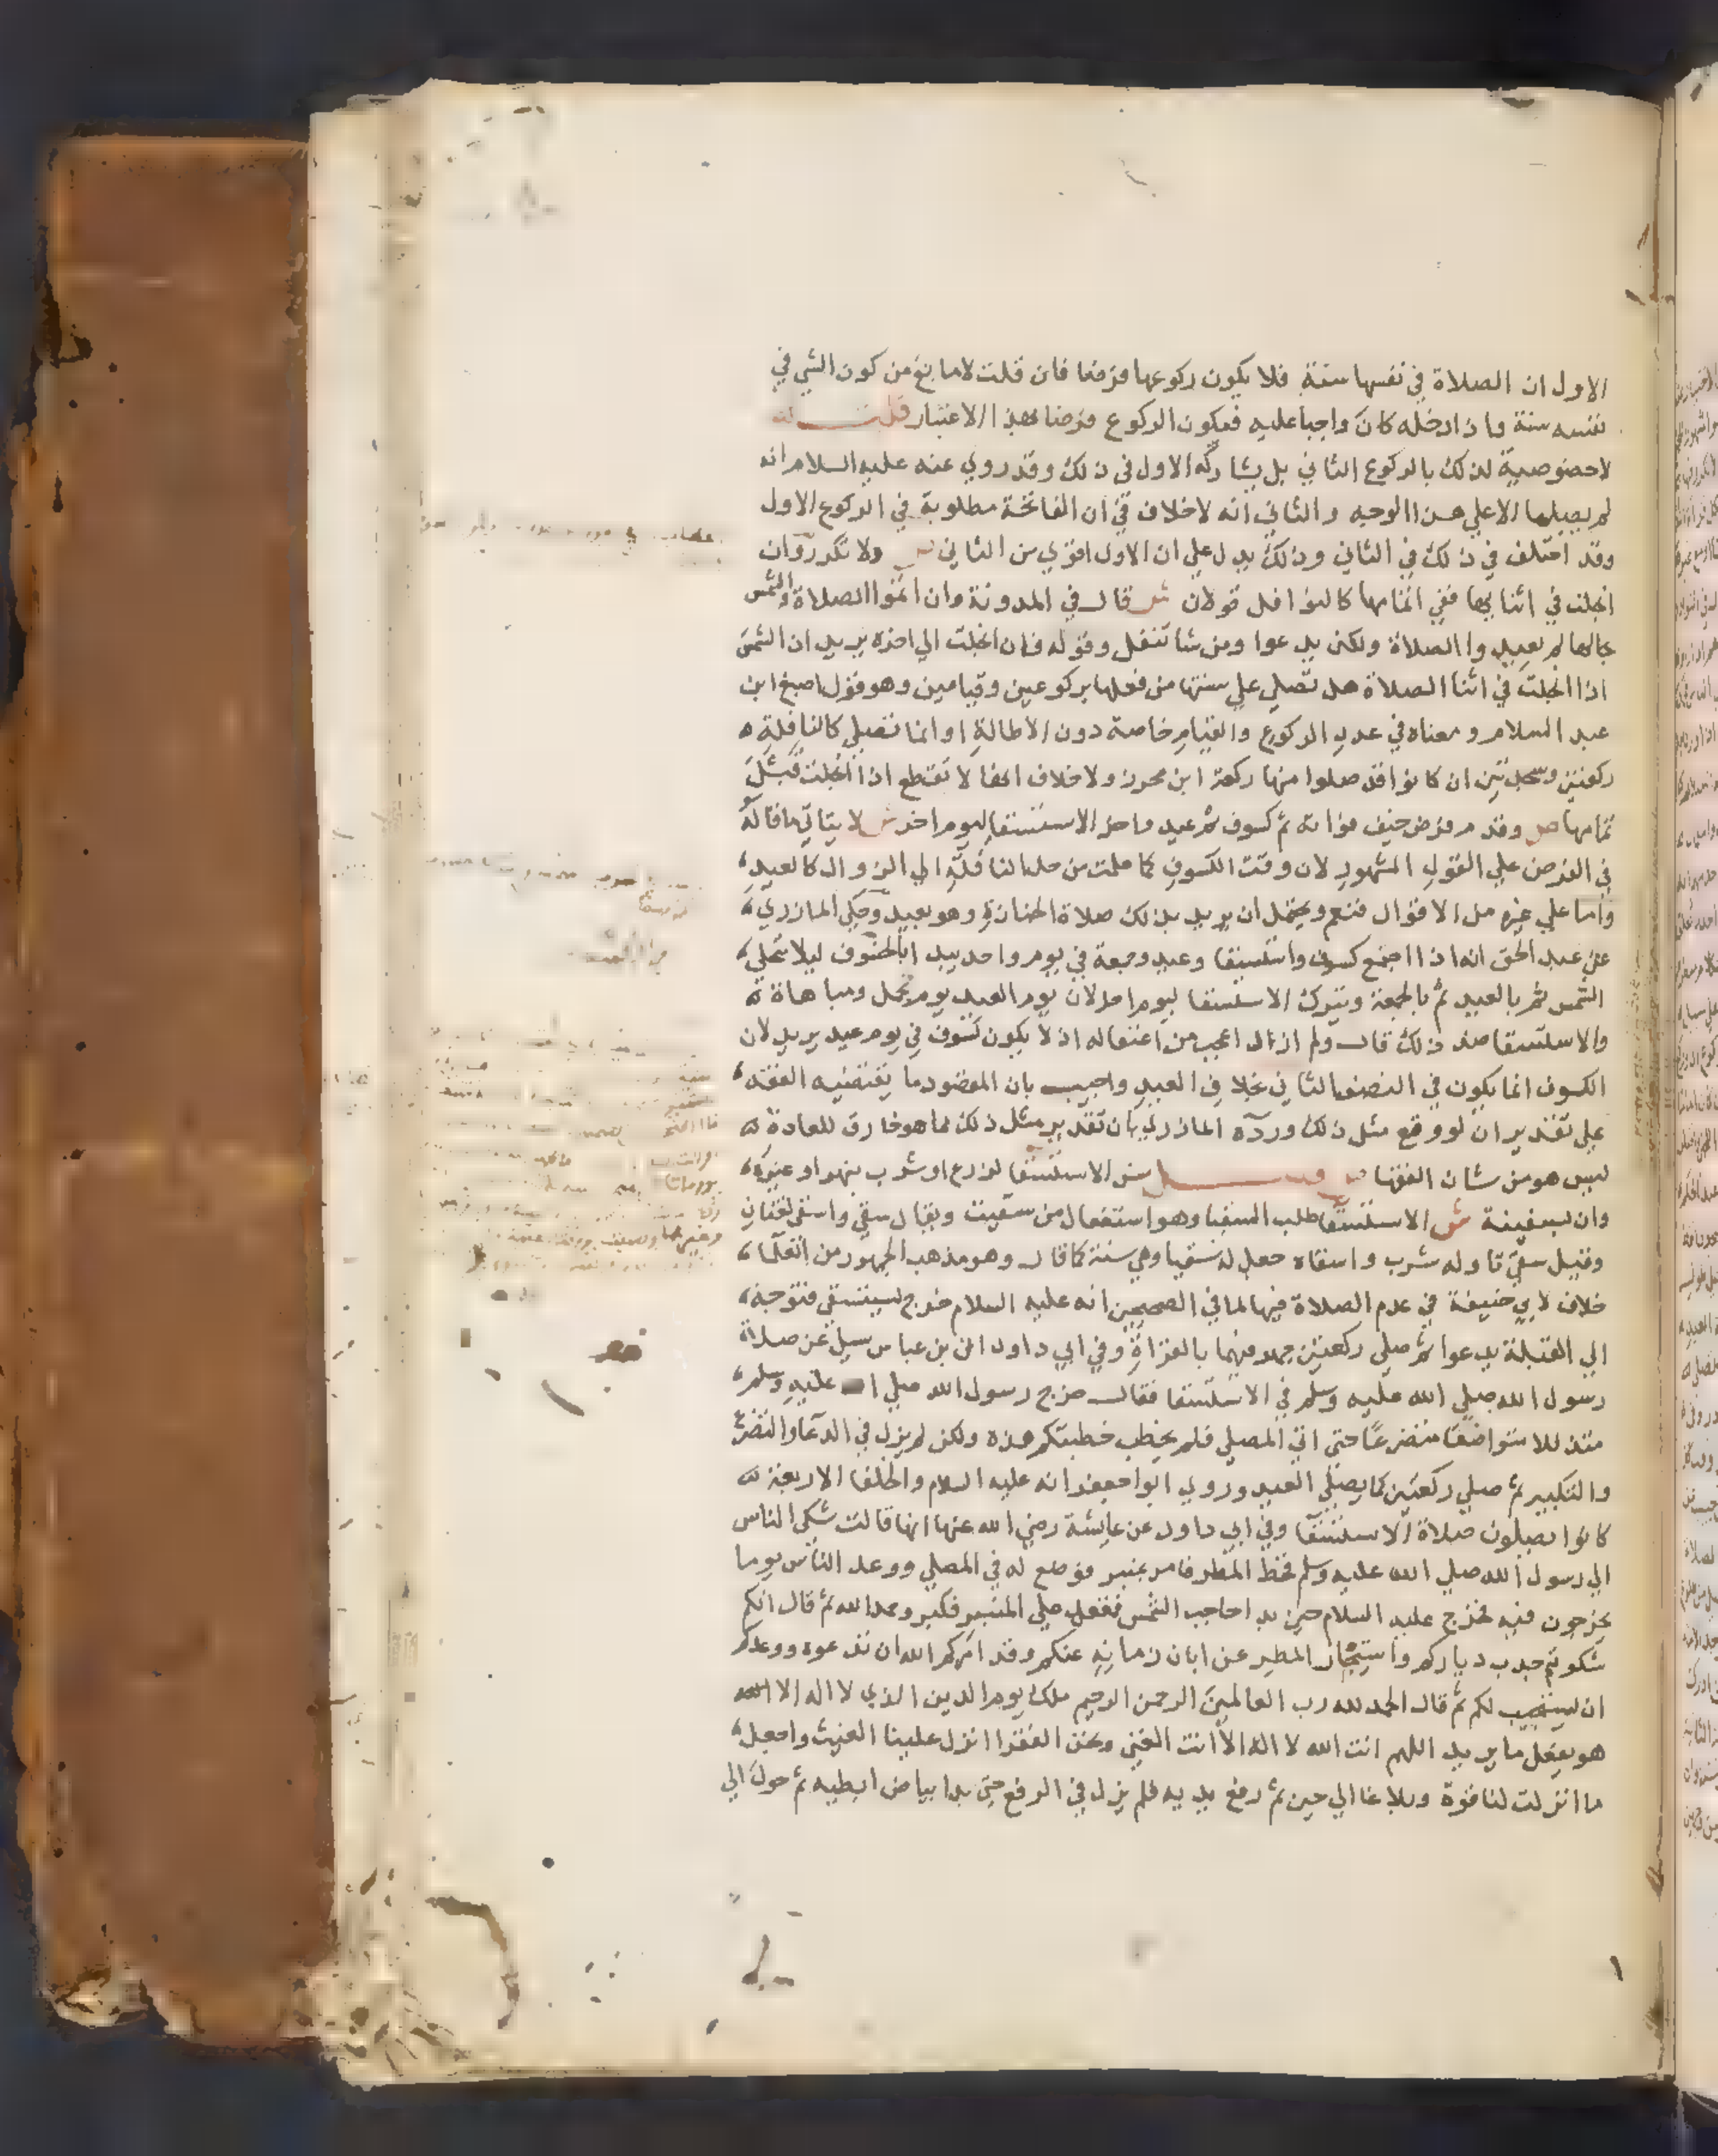 الاول ان الصلاة في نفسها سنة فلا يكون ركوعها فرضا فان قلت لا مانع من كون الشي في
نفسه سنة واذا دخله كان واجبا عليه فيكون الركوع فرضا بهذا الاعتبار قلت
لا خصوصية لذلك بالركوع الثاني بل يشاركه الاول في ذلك وقد روي عنه عليه السلام انه
لم يصلها الا علي هذا الوجه والثاني انه لا خلاف في ان الفاتحة مطلوبة في الركوع الاول
وقد اختلف في ذلك في الثاني وذلك يدل علي ان الاول اقوي من الثاني ولا تكرر وان
انجلت في اثنايها ففي اتمامها كالنوافل قولان ش قال في المدونة وان اتموا الصلاة والشمس
بحالها لم يعيدوا الصلاة ولكن يدعوا ومن شا تنفل وقوله فان انجلت الي اخره يريد ان الشمس
اذا انجلت في اثنا الصلاة هل تصلي علي سنتها من فعلها بركوعين وقيامين وهو قول اصبغ ابن
عبد السلام ومعناه في عدد الركوع والقيام خاصة دون الاطالة او انما تصلي كالنافلة
ركعتين وسجدتين ان كانوا قد صلوا منها ركعة ابن محرز ولا خلاف انها لا تقطع اذا انجلت قبل
تمامها ص وقدم فرض خيف فواته ثم كسوف ثم عيد واخر الاستسقا ليوم اخر ش لا يتاتي ما قاله
في الفرض علي القول المشهور لان وقت الكسوف كما علمت من حل النافلة الي الزوال كالعيد
واما علي غيره من الاقوال فنعم ويحتمل ان يريد بذلك صلاة الجنازة وهو بعيد وحكي المازري
عن عبد الحق انه اذا اجتمع كسوف واستسقا وعيد وجمعة في يوم واحد يبدا بالخسوف ليلا تنجلي
الشمس ثم بالعيد ثم بالجمعة ويترك الاستسقا ليوم اخر لان يوم العيد يوم تجمل ومباهاة
والاستسقا ضد ذلك قال ولم ازل اعجب من اغتفاله اذ لا يكون كسوف في يوم عيد يريد لان
الكسوف انما يكون في النصف الثاني بخلاف العيد واجيب بان المقصود ما يقتضيه الفقه
علي تقدير ان لو وقع مثل ذلك ورده المازري بان تقدير مثل ذلك مما هو خارق للعادة
ليس هو من شان الفقها ص فصل سن الاستسقا لزرع او شرب بنهر او غيره
وان بسفينة ش الاستسقا طلب السقيا وهو استفعال من سقيت ويقال سقي واسقي لغتان
وقيل سقي ناوله شرب واسقاه جعل له سقيا وهي سنة كما قال وهو مذهب الجمهور من العلما
خلاف لابي حنيفة في عدم الصلاة فيها لما في الصحيحين انه عليه السلام خرج ليستسقي فتوجه
الي القبلة يدعوا ثم صلي ركعتين جهر فيهما بالقراة وفي ابي داود ان بن عباس سيل عن صلاة
رسول الله صلي الله عليه وسلم في الاستسقا فقال خرج رسول الله صلي الله عليه وسلم
متذللا متواضعا متضرعا حتي اتي المصلي فلم يخطب خطبتكم هذه ولكن لم يزل في الدعا والتضرع
والتكبير ثم صلي ركعتين كما يصلي العيد وروي ابوا جعفر انه عليه السلام والخلفا الاربعة
كانوا يصلون صلاة الاستسقا وفي ابي داود عن عايشة رضي الله عنها انها قالت شكي الناس
الي رسول الله صلي الله عليه وسلم قحط المطر فامر بمنبر فوضع له في المصلي ووعد الناس يوما
يخرجون فيه فخرج عليه السلام حين بدا حاجب الشمس فقعد علي المنبر فكبر وحمد الله ثم قال انكم
شكوتم جدب دياركم واستيخار المطر عن ابان زمانه عنكم وقد امركم الله ان تدعوه ووعدكم
ان يستجيب لكم ثم قال الحمد لله رب العالمين الرحمن الرحيم ملك يوم الدين الذي لا اله الا الله
هو يفعل ما يريد اللهم انت الله لا اله الا انت الغني ونحن الفقرا انزل علينا الغيث واجعل
ما انزلت لنا قوة وبلاغا الي حين ثم رفع يديه فلم يزل في الرفع حتي بدا بياض ابطيه ثم حول الي